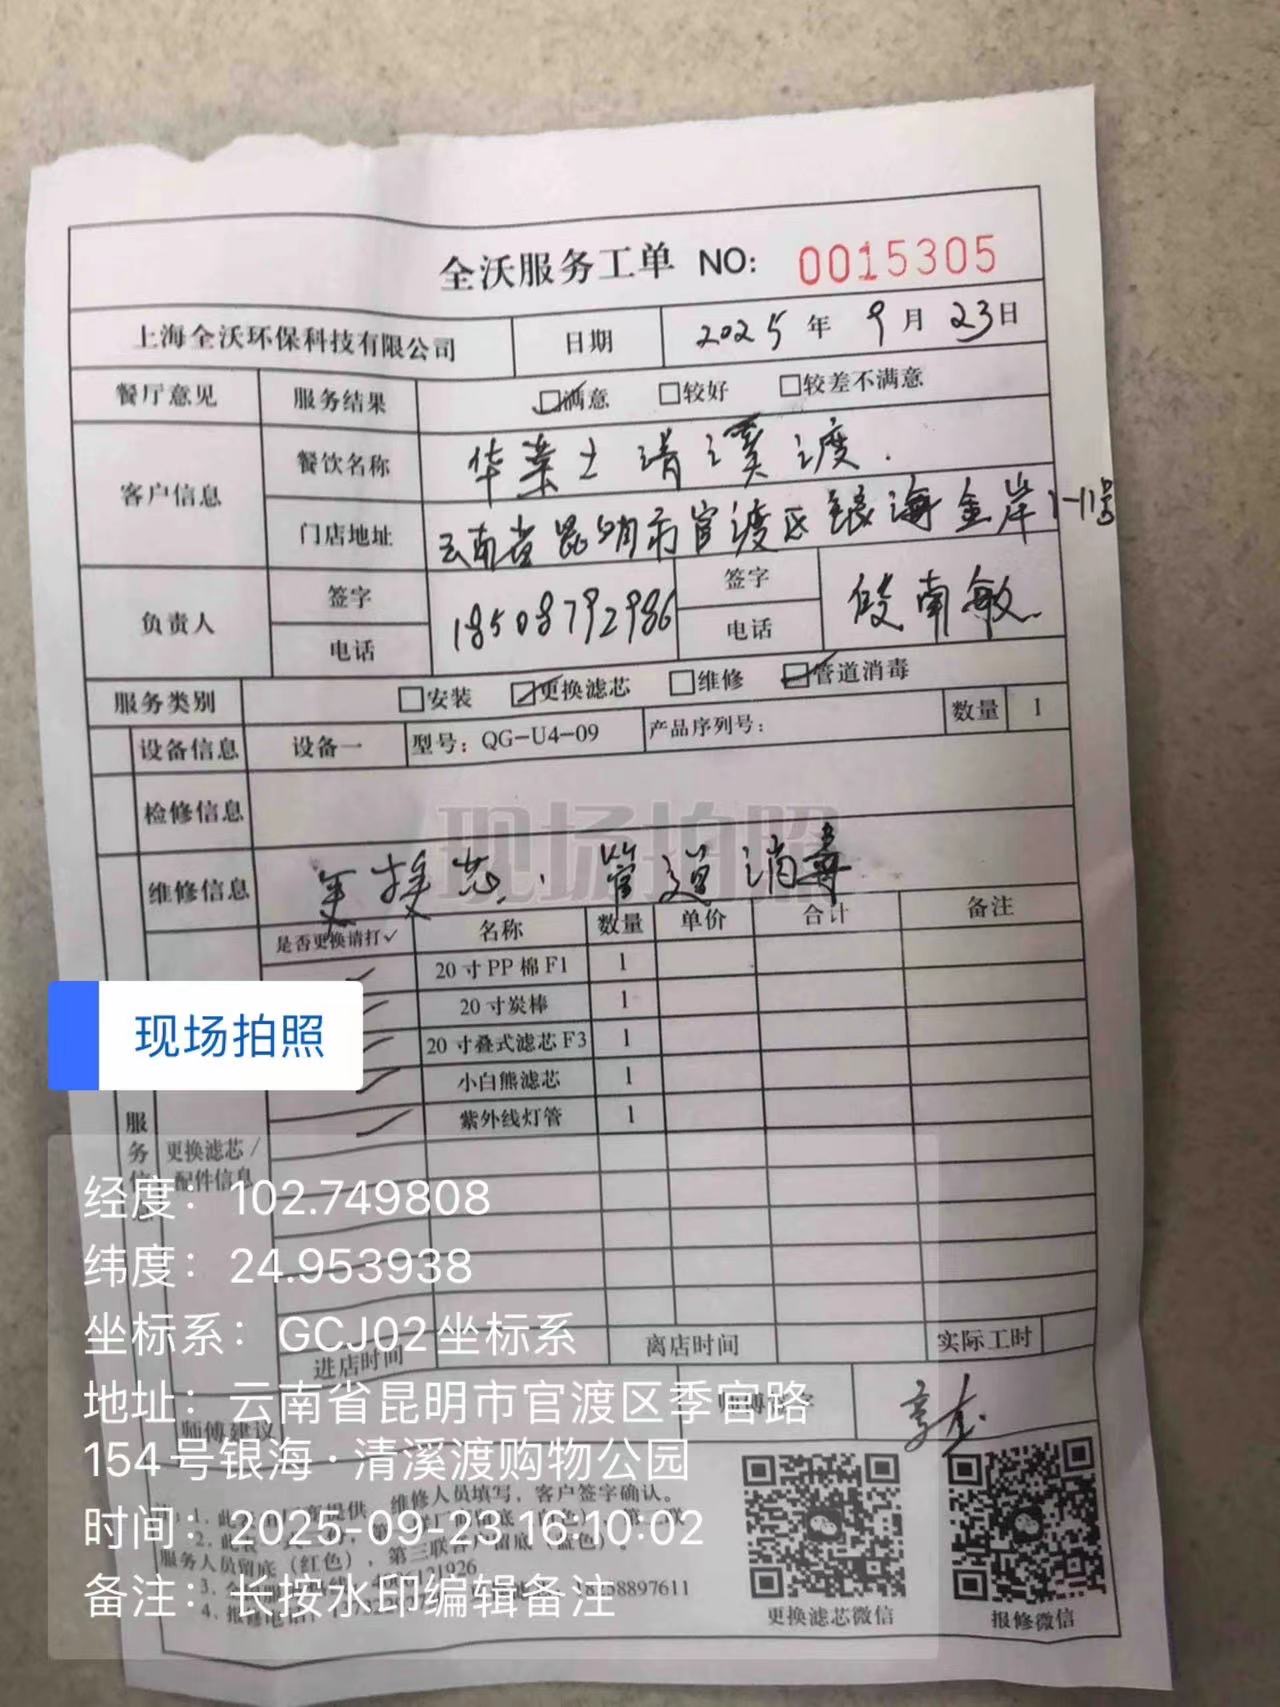 全沃服务工单 NO: 0015305
上海全沃环保科技有限公司 日期 2025年9月23日
餐厅意见 服务结果 □满意 □较好 □较差不满意
客户信息 餐饮名称 华莱士清溪渡.
门店地址 云南省昆明市官渡区银海金岸1-11号
负责人 签字 电话 18508792986 签字 电话 段南敏
服务类别 □安装 □更换滤芯 □维修 □管道消毒
设备信息 设备一 型号: QG-U4-09 产品序列号: 数量 1
检修信息
现场拍照
维修信息 更换芯. 管道消毒
是否更换请打✓ 名称 数量 单价 合计 备注
✓ 20寸PP棉F1 1
✓ 20寸炭棒 1
✓ 20寸叠式滤芯F3 1
✓ 小白熊滤芯 1
✓ 紫外线灯管 1
现场拍照
服务信息
更换滤芯/配件信息
进店时间 离店时间 实际工时
师傅建议
更换滤芯微信 报修微信
经度: 102.749808
纬度: 24.953938
坐标系: GCJ02坐标系
地址: 云南省昆明市官渡区季官路
154号银海·清溪渡购物公园
时间: 2025-09-23 16:10:02
备注: 长按水印编辑备注